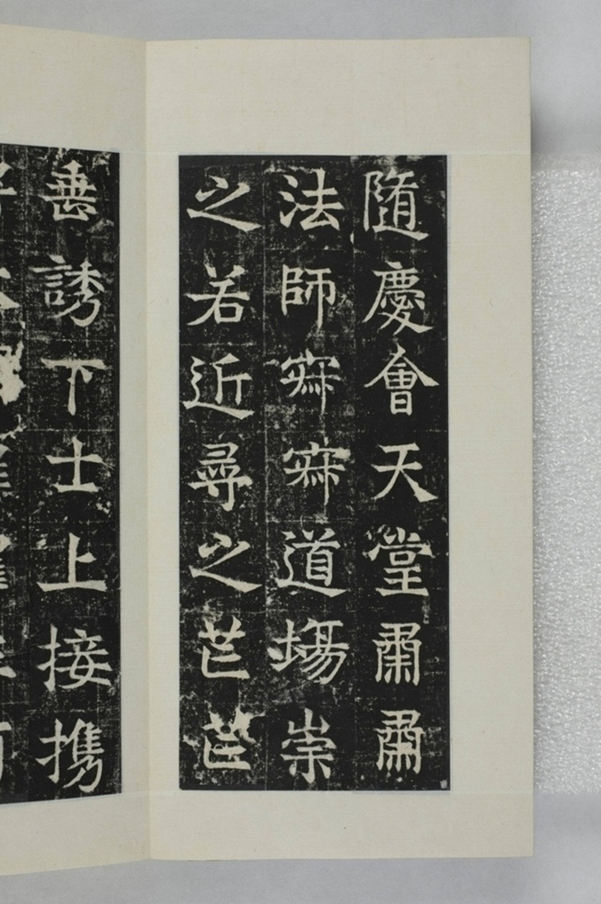 隨慶會天堂肅肅
法師寂寂道場崇
之若近尋之芒芒
善誘下士上接攜